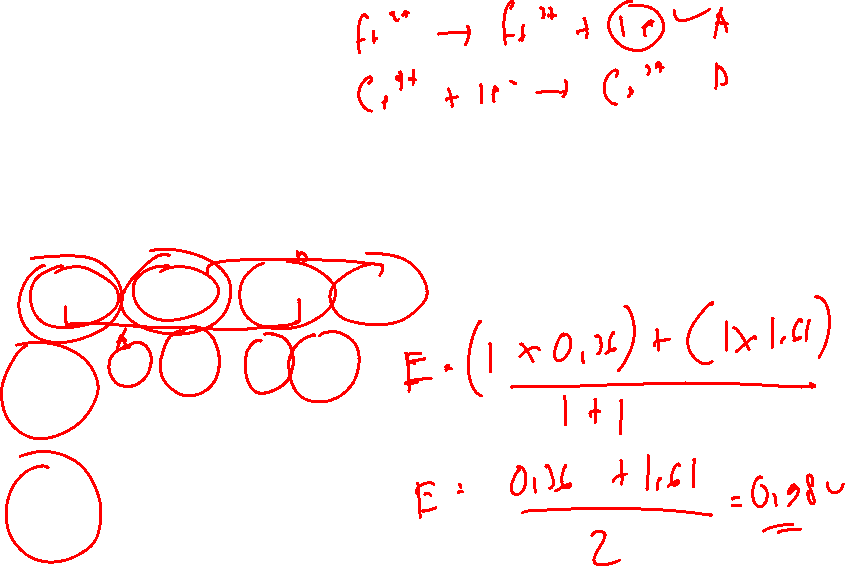 Fe²⁺ → Fe³⁺ + 1e A
Ce⁴⁺ + 1e⁻ → Ce³⁺ D
E = (1 × 0,36) + (1 × 1,61)
1 + 1
E = 0,36 + 1,61 = 0,98 v
2